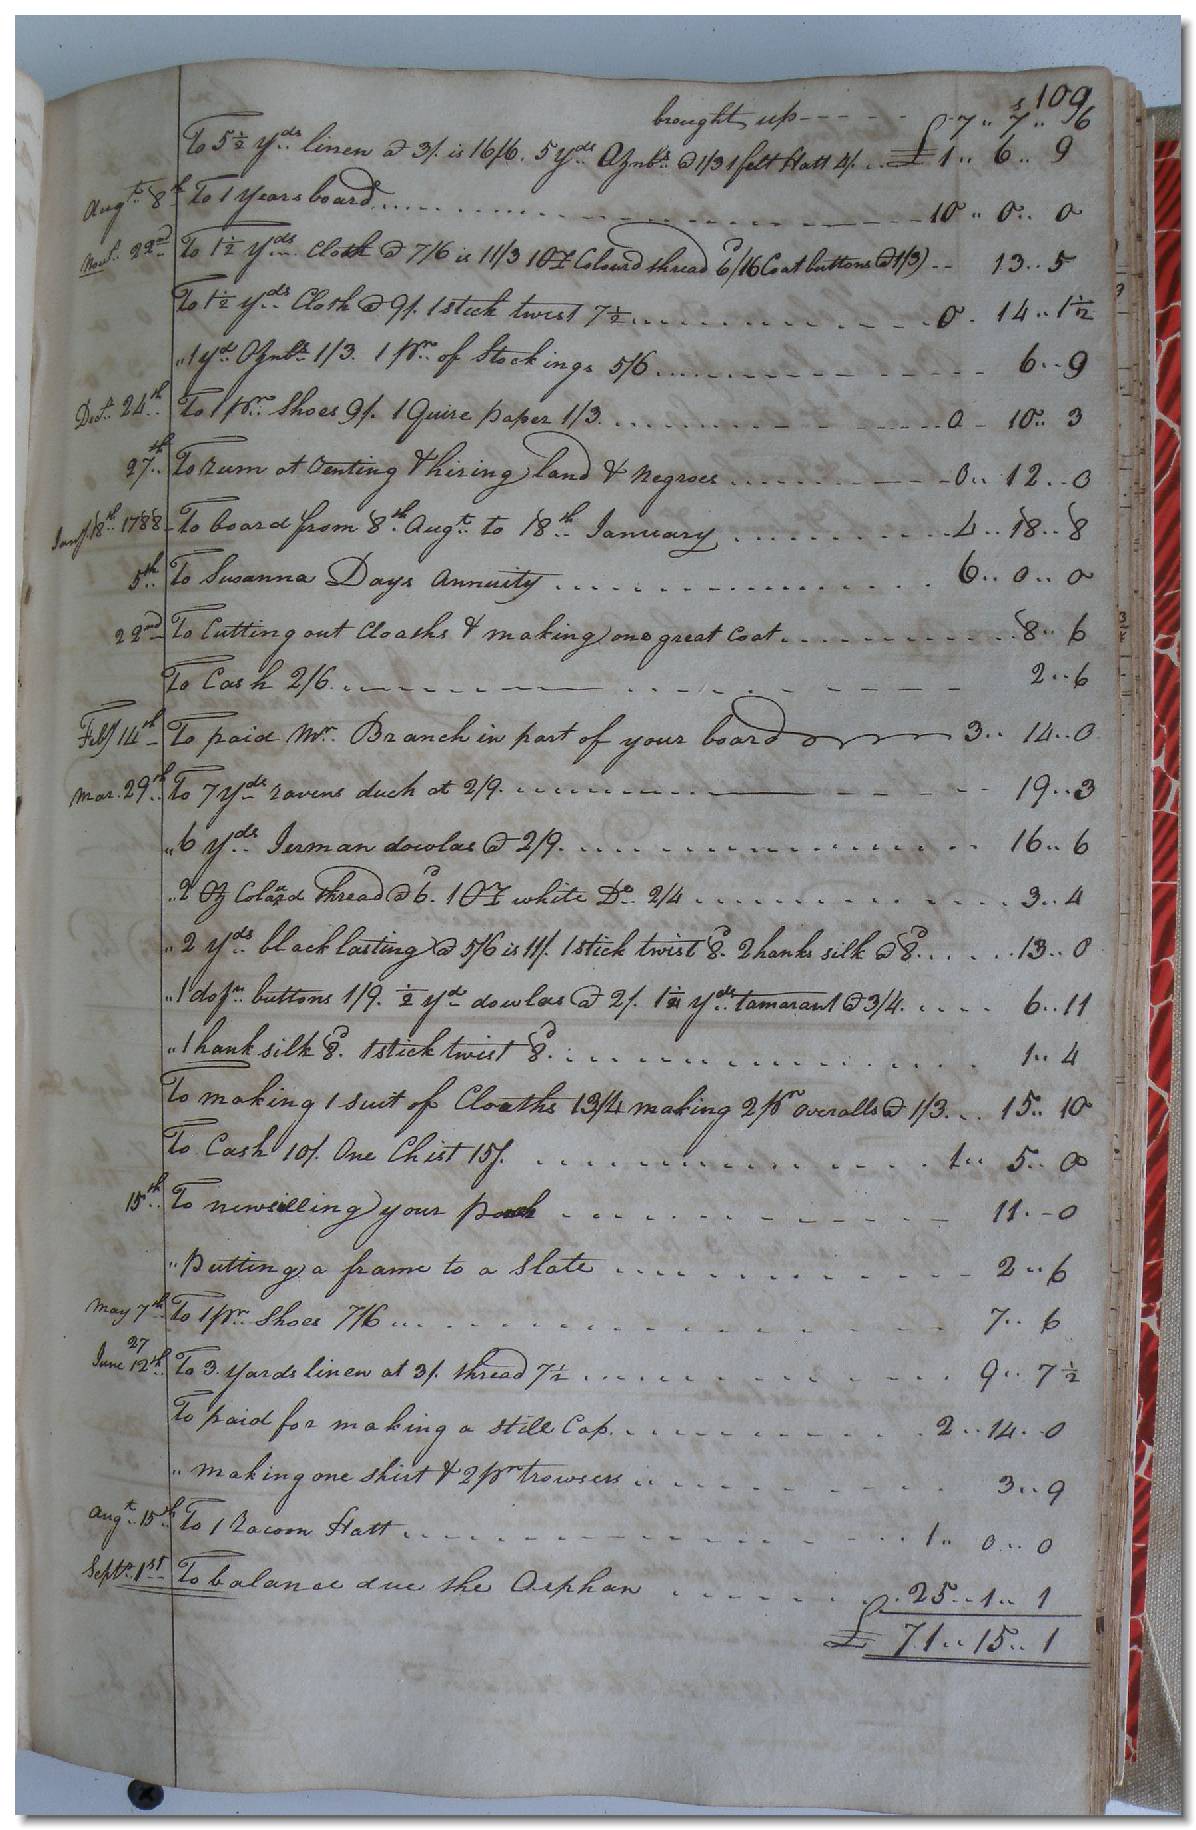 109
brought up - - - - - 7 .. 7 .. 6
To 5½ yds linen @ 3/. is 16/6. 5 yds Oznbs @ 1/3 1 felt Hatt 4/. .. £ 1 .. 6 .. 9
Augt 8th To 1 Years board .... 10 .. 0 .. 0
Novr 22nd To 1½ yds Cloth @ 7/6 is 11/3 1 Oz Colourd thread 6d/16 Coat buttons @ 1/3) .. 13 .. 5
To 1½ yds Cloth @ 9/. 1 stick twist 7½ .... 0 . 14 .. 1½
.. 1 yd Oznbs 1/3. 1 pr of Stockings 5/6 .... 6 .. 9
Decr 24th To 1 pr Shoes 9/. 1 Quire paper 1/3. .... 0 - 10 .. 3
27th To rum at renting & hiring land & negroes .... 0 .. 12 .. 0
Jany 18th 1788 To board from 8th Augt to 18th January .... 4 .. 18 .. 8
5th To Susanna Days annuity .... 6 .. 0 .. 0
22nd To Cutting out Cloaths & making one great Coat .... 8 .. 6
To Cash 2/6 .... 2 .. 6
Feby 14th To paid Mr. Branch in part of your board 3 .. 14 .. 0
Mar. 29th To 7 yds ravens duck at 2/9. .... 19 .. 3
.. 6 yds Jerman dowlas @ 2/9. .... 16 .. 6
.. 2 Oz Colard thread @ 6d. 1 Oz white Do 2/4 .... 3 .. 4
.. 2 yds black lasting @ 5/6 is 11/. 1 stick twist 8d. 2 hanks silk @ 8d. .... 13 .. 0
.. 1 dozn buttons 1/9. ½ yd dowlas @ 2/. 1½ yds tamarant @ 3/4. .... 6 .. 11
.. 1 hank silk 8d. 1 stick twist 8d. .... 1 .. 4
To making 1 suit of Cloaths 13/4 making 2 pr overalls @ 1/3. .. 15 .. 10
To Cash 10/. One Chist 15/. .... 1 .. 5 .. 0
15th To newsilling your .... 11 .. 0
.. Putting a frame to a Slate .... 2 .. 6
May 7th To 1 pr Shoes 7/6 .... 7 .. 6
27
June 12th To 3 yards linen at 3/. thread 7½ .... 9 .. 7½
To paid for making a still Cap .... 2 .. 14 .. 0
.. making one shirt & 2 pr trowsers .... 3 .. 9
Augt 15th To 1 Racom Hatt .... 1 .. 0 .. 0
Septr 1st To balance due the Orphan .... 25 .. 1 .. 1
£ 71 .. 15 .. 1